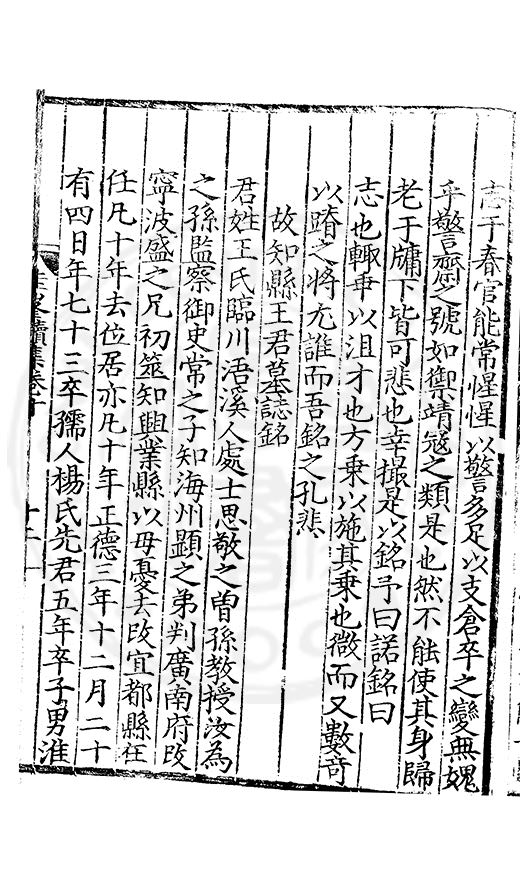 志于春官能常惺惺以警多足以支倉卒之變無媿
乎警齋之號如禦靖寇之類是也然不能使其身歸
老于牖下皆可悲也幸撮是以銘予曰諾銘曰
志也輒乖以沮才也方乗以施其乗也微而又數奇
以躋之將尤誰而吾銘之孔悲
故知縣王君墓誌銘
君姓王氏臨川浯溪人處士思敬之曽孫教授汝為
之孫監察御史常之子知海州顕之弟判廣南府改
寧波盛之兄初筮知興業縣以母憂去改宜都縣在
任凡十年去位居亦凡十年正德三年十二月二十
有四日年七十三卒孺人楊氏先君五年卒子男淮